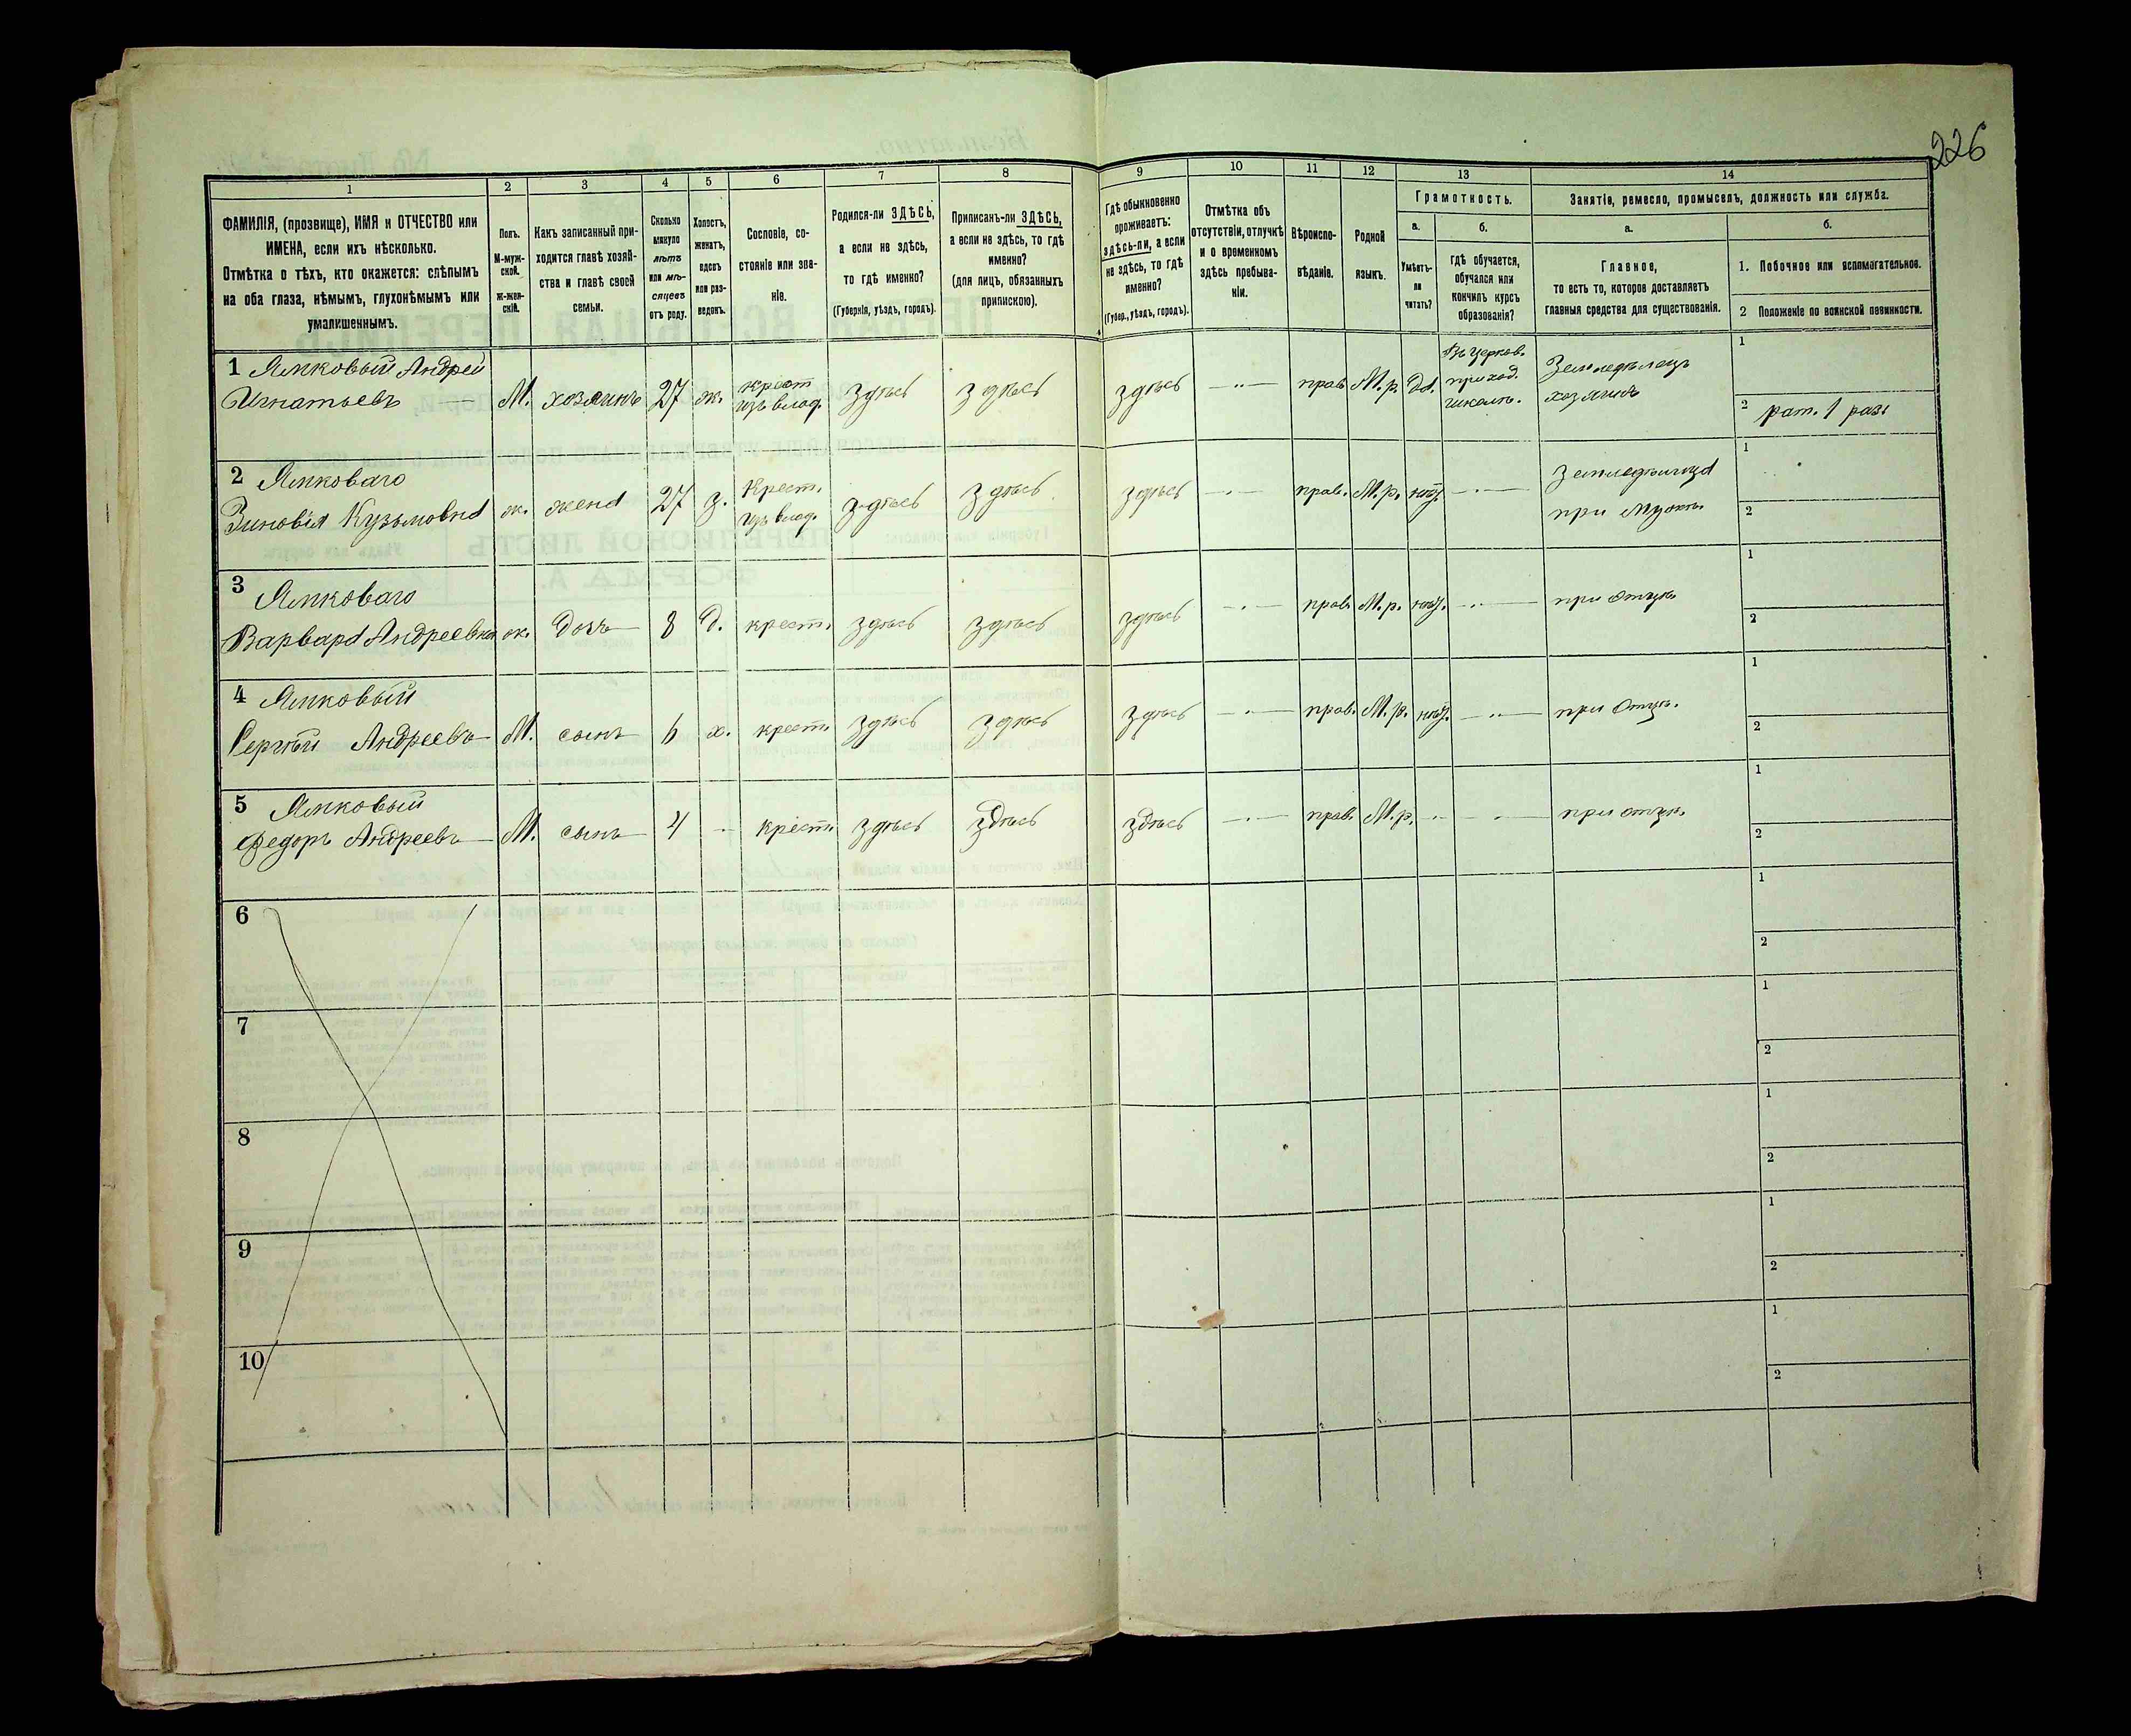 226
1
2
3
4
5
6
7
8
9
10
11
12
13
14
ФАМИЛІЯ, (прозвище), ИМЯ и ОТЧЕСТВО или
ИМЕНА, если ихъ нѣсколько.
Отмѣтка о тѣхъ, кто окажется: слѣпымъ
на оба глаза, нѣмымъ, глухонѣмымъ или
умалишеннымъ.
Полъ.
М-муж-
ской.
ж-жен-
скій.
Какъ записанный при-
ходится главѣ хозяй-
ства и главѣ своей
семьи.
Сколько
минуло
лѣтъ
или мѣ-
сяцевъ
отъ роду.
Холостъ,
женатъ,
вдовъ
или раз-
веденъ.
Сословіе, со-
стояніе или зва-
ніе.
Родился-ли ЗДѢСЬ,
а если не здѣсь,
то гдѣ именно?
(Губернія, уѣздъ, городъ).
Приписанъ-ли ЗДѢСЬ,
а если не здѣсь, то гдѣ
именно?
(для лицъ, обязанныхъ
припискою).
Гдѣ обыкновенно
проживаетъ:
здѣсь-ли, а если
не здѣсь, то гдѣ
именно?
(Губер., уѣздъ, городъ).
Отмѣтка объ
отсутствіи, отлучкѣ
и о временномъ
здѣсь пребыва-
ніи.
Вѣроиспо-
вѣданіе.
Родной
языкъ.
Грамотность.
а.
Умѣетъ-
ли
читать?
б.
гдѣ обучается,
обучался или
кончилъ курсъ
образованія?
Занятіе, ремесло, промыселъ, должность или служба.
а.
Главное,
то есть то, которое доставляетъ
главныя средства для существованія.
б.
1. Побочное или вспомогательное.
2 Положеніе по воинской повинности.
1 Ямковый Андрей
Игнатьевъ — М. хозяинъ 27 ж. крест. изъ влад. здѣсь здѣсь здѣсь —"— прав. М.р. да. Въ церков. приход. школѣ. Земледѣлецъ хозяинъ
1
2 рат. 1 раз.
2 Ямковаго
Зиновія Кузьмовна ж. жена 27 з. Крест. изъ влад. здѣсь здѣсь здѣсь —"— прав. М.р. нѣт. —"— земледѣлица при мужѣ.
1
2
3 Ямковаго
Варвара Андреевна ж. дочь 8 д. крест. здѣсь здѣсь здѣсь —"— прав. М.р. нѣт. —"— при отцѣ.
1
2
4 Ямковый
Сергѣй Андреевъ М. сынъ 6 х. крест. здѣсь здѣсь здѣсь —"— прав. М.р. нѣт. —"— при отцѣ.
1
2
5 Ямковый
Федоръ Андреевъ М. сынъ 4 - крест. здѣсь здѣсь здѣсь —"— прав. М.р. —"— при отцѣ.
1
2
6
1
2
7
1
2
8
1
2
9
1
2
10
1
2